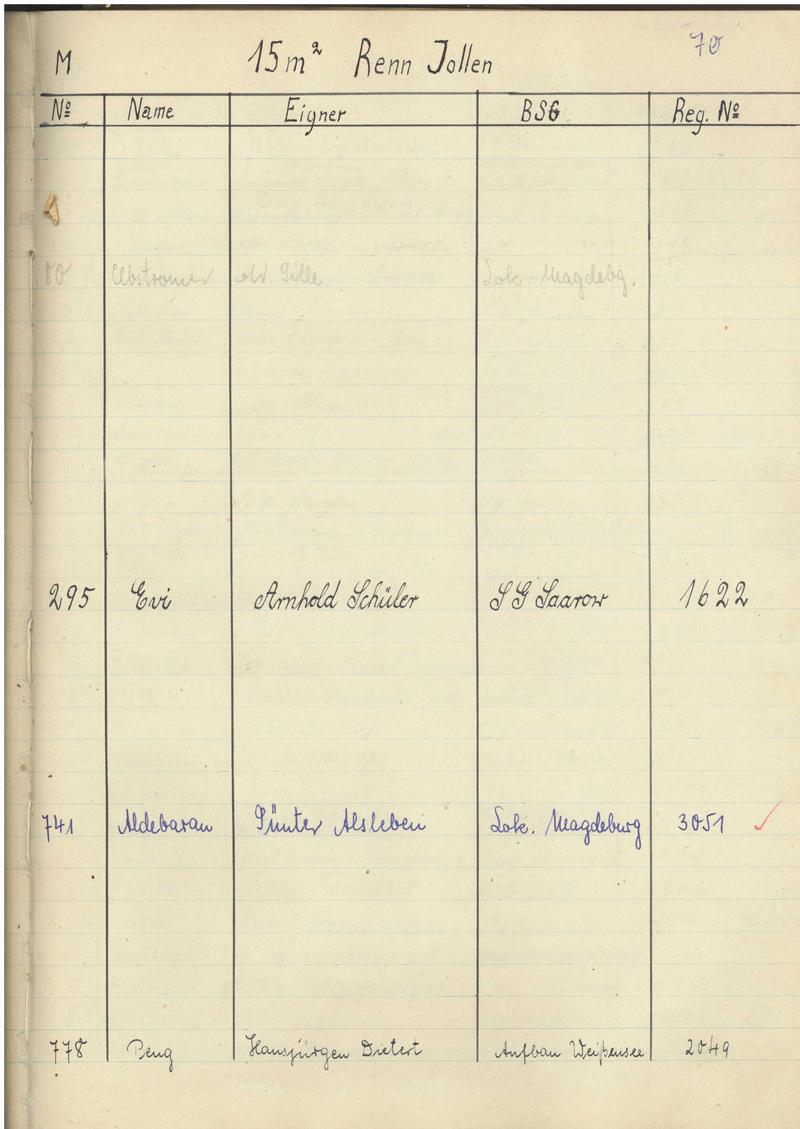 M 15m² Renn Jollen 70
Nº Name Eigner BSG Reg. Nº
80 Lok. Magdebg.
295 Evi Arnhold Schüler SG Saarow 1622
741 Aldebaran Günter Alsleben Lok. Magdeburg 3051 ✓
778 Peng Hansjürgen Dietert Aufbau Weißensee 2049